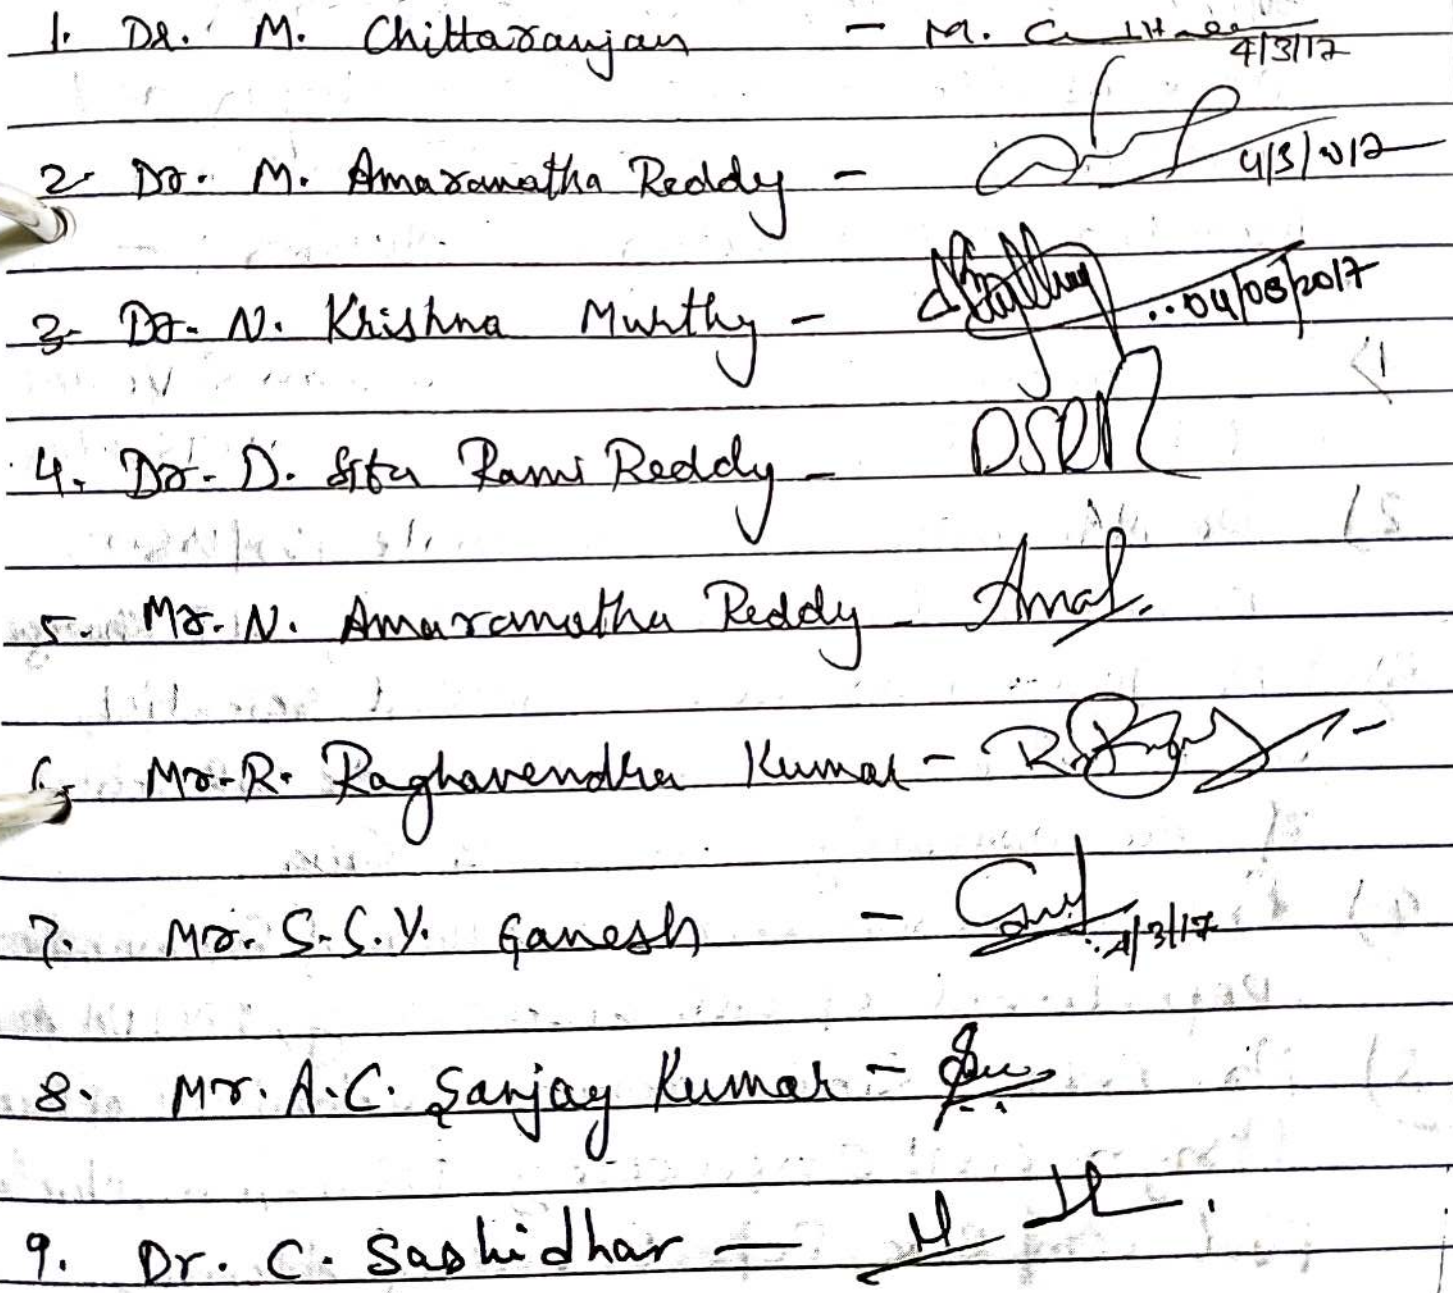 1. Dr. M. Chittaranjan - M. 4/3/17
2. Dr. M. Amaranatha Reddy - 4/3/2017
3. Dr. N. Krishna Murthy - 04/03/2017
4. Dr. D. Sita Rami Reddy - DSR
5. Mr. N. Amaranatha Reddy - Amar.
6. Mr. R. Raghavendra Kumar - R.
7. Mr. S.S.V. Ganesh - 4/3/17
8. Mr. A.C. Sanjay Kumar -
9. Dr. C. Sashidhar -